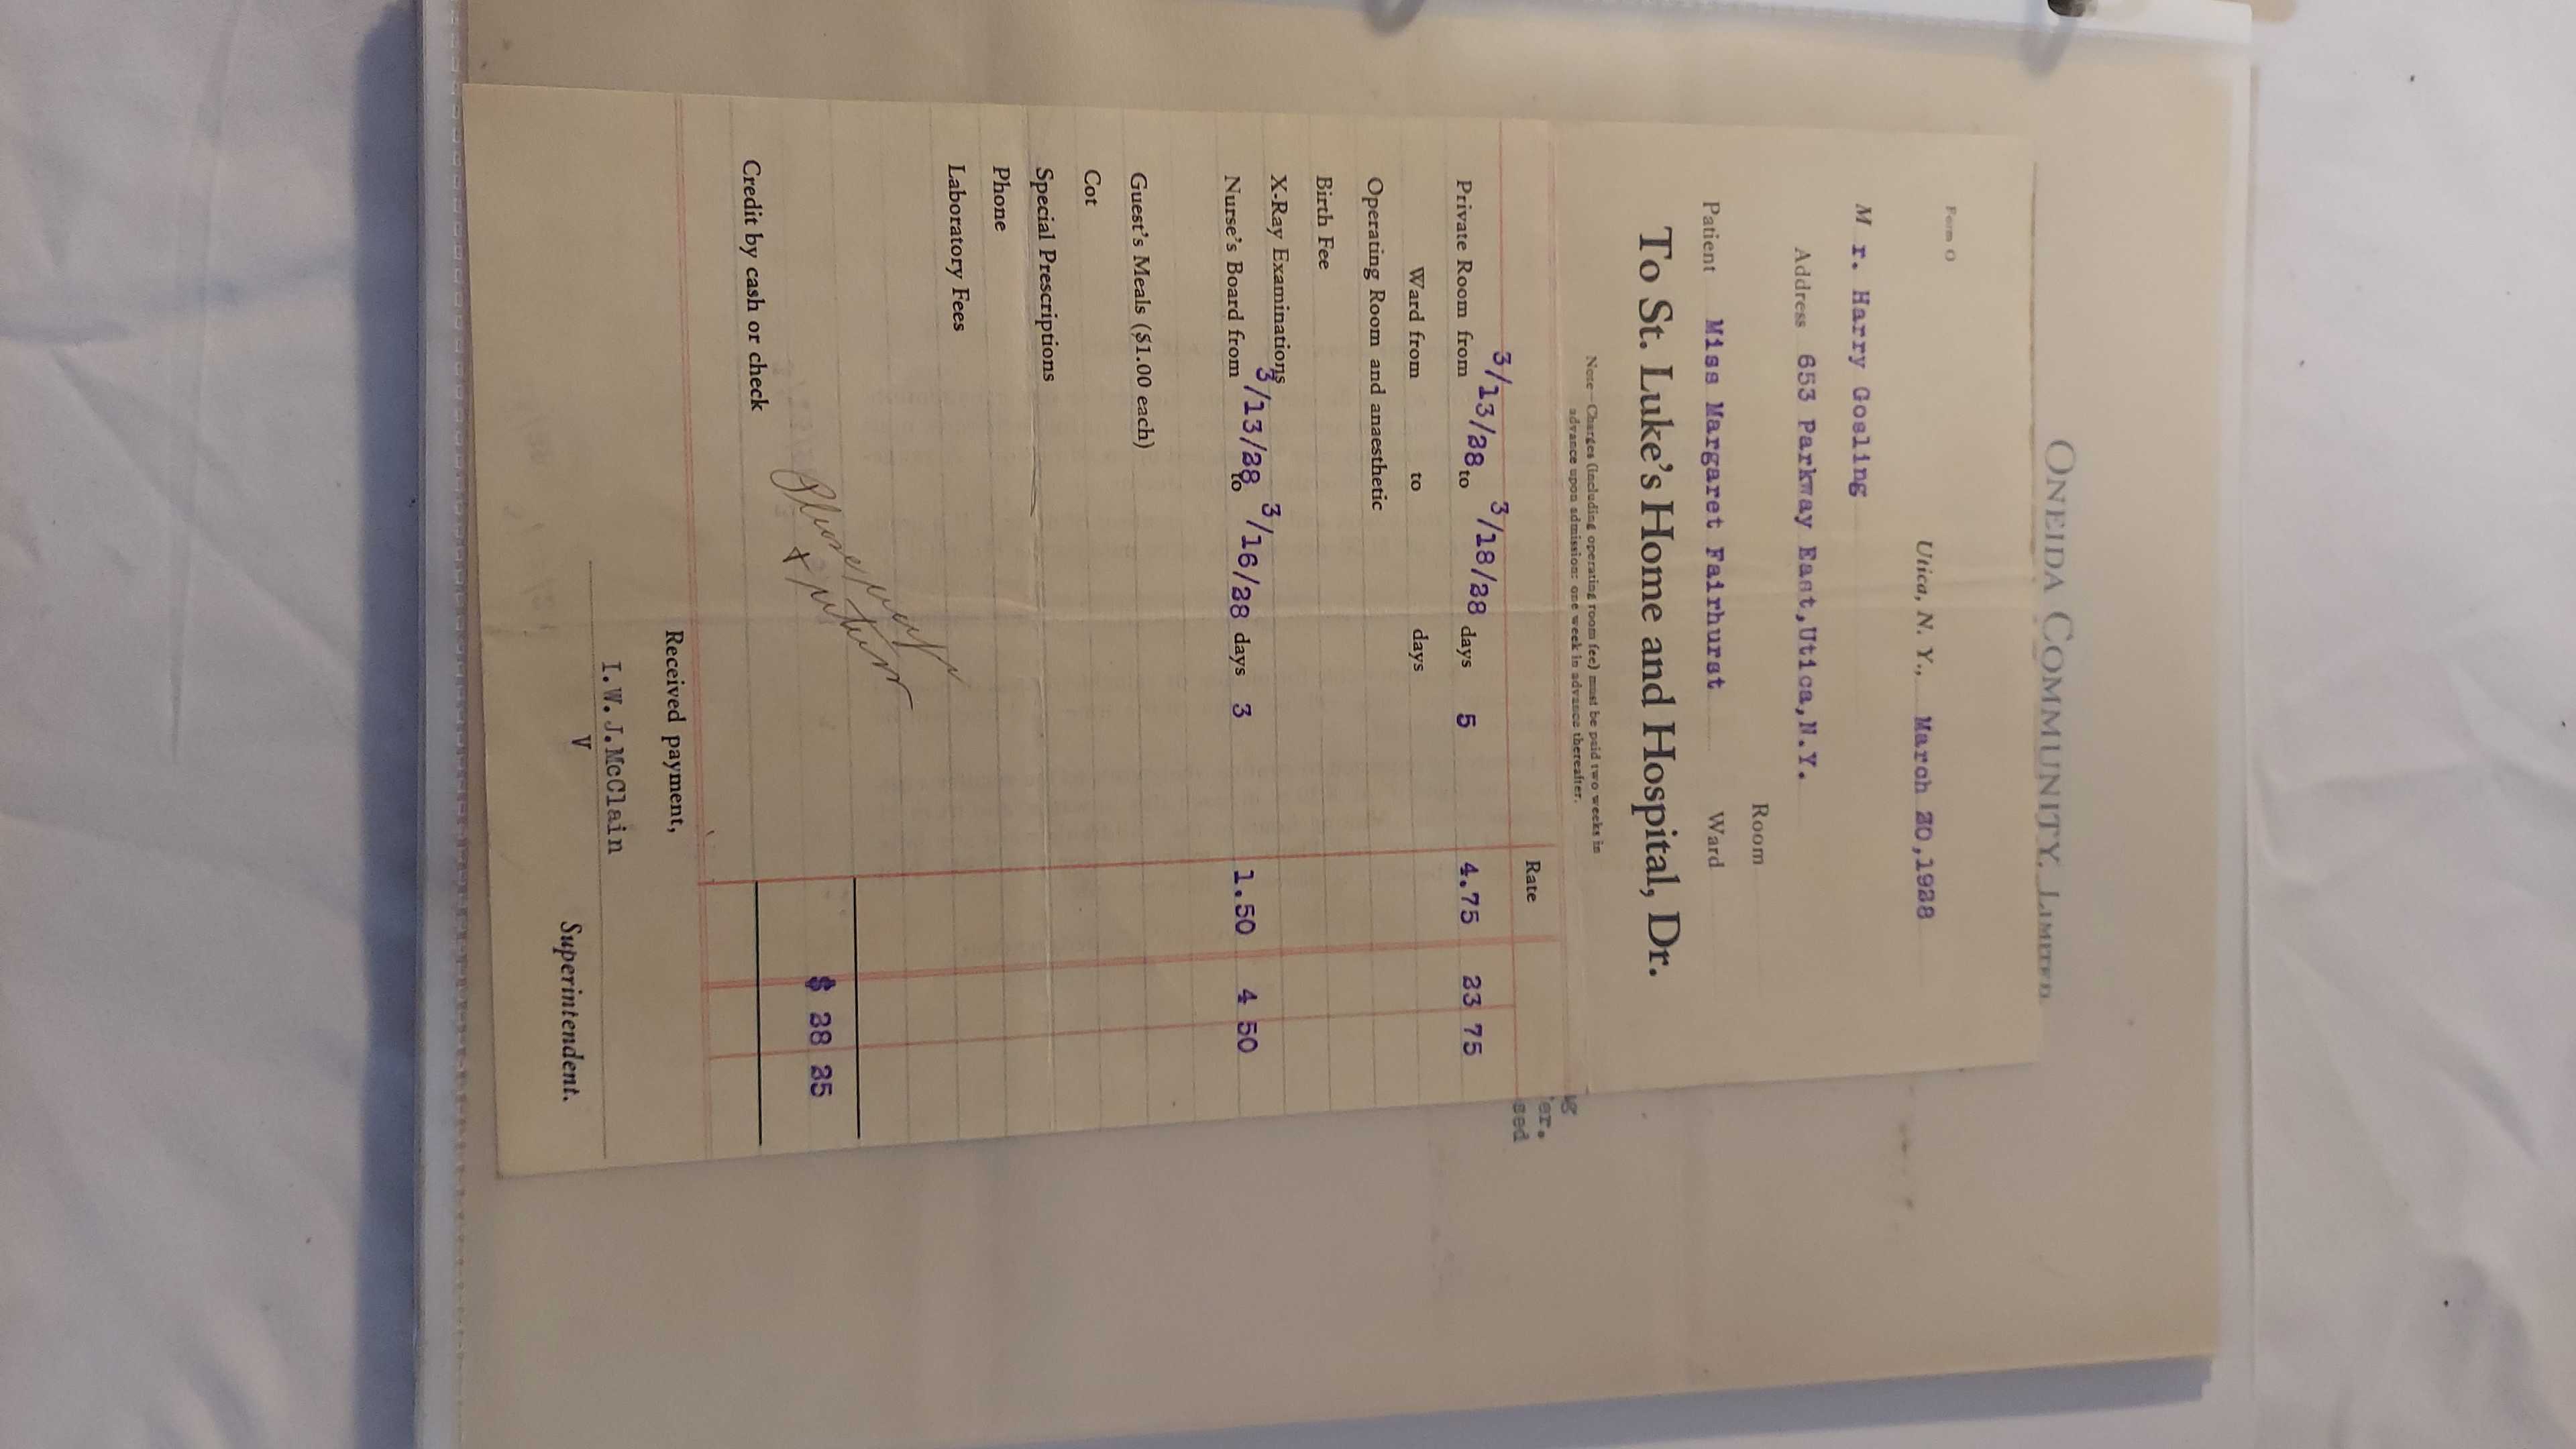 ONEIDA COMMUNITY, LIMITED
Form O
Utica, N. Y., March 20,1928
M r. Harry Gosling
Address 653 Parkway East,Utica,N.Y.
Room
Patient Miss Margaret Fairhurst Ward
To St. Luke's Home and Hospital, Dr.
Note—Charges (including operating room fee) must be paid two weeks in
advance upon admission: one week in advance thereafter.
Rate
Private Room from 3/13/28 to 3/18/28 days 5 4.75 23 75
Ward from to days
Operating Room and anaesthetic
Birth Fee
X-Ray Examinations
Nurse's Board from 3/13/28 to 3/16/28 days 3 1.50 4 50
Guest's Meals ($1.00 each)
Cot
Special Prescriptions
Phone
Laboratory Fees
$ 28 25
Credit by cash or check
Received payment,
I.W.J.McClain
V
Superintendent.
er.
sed